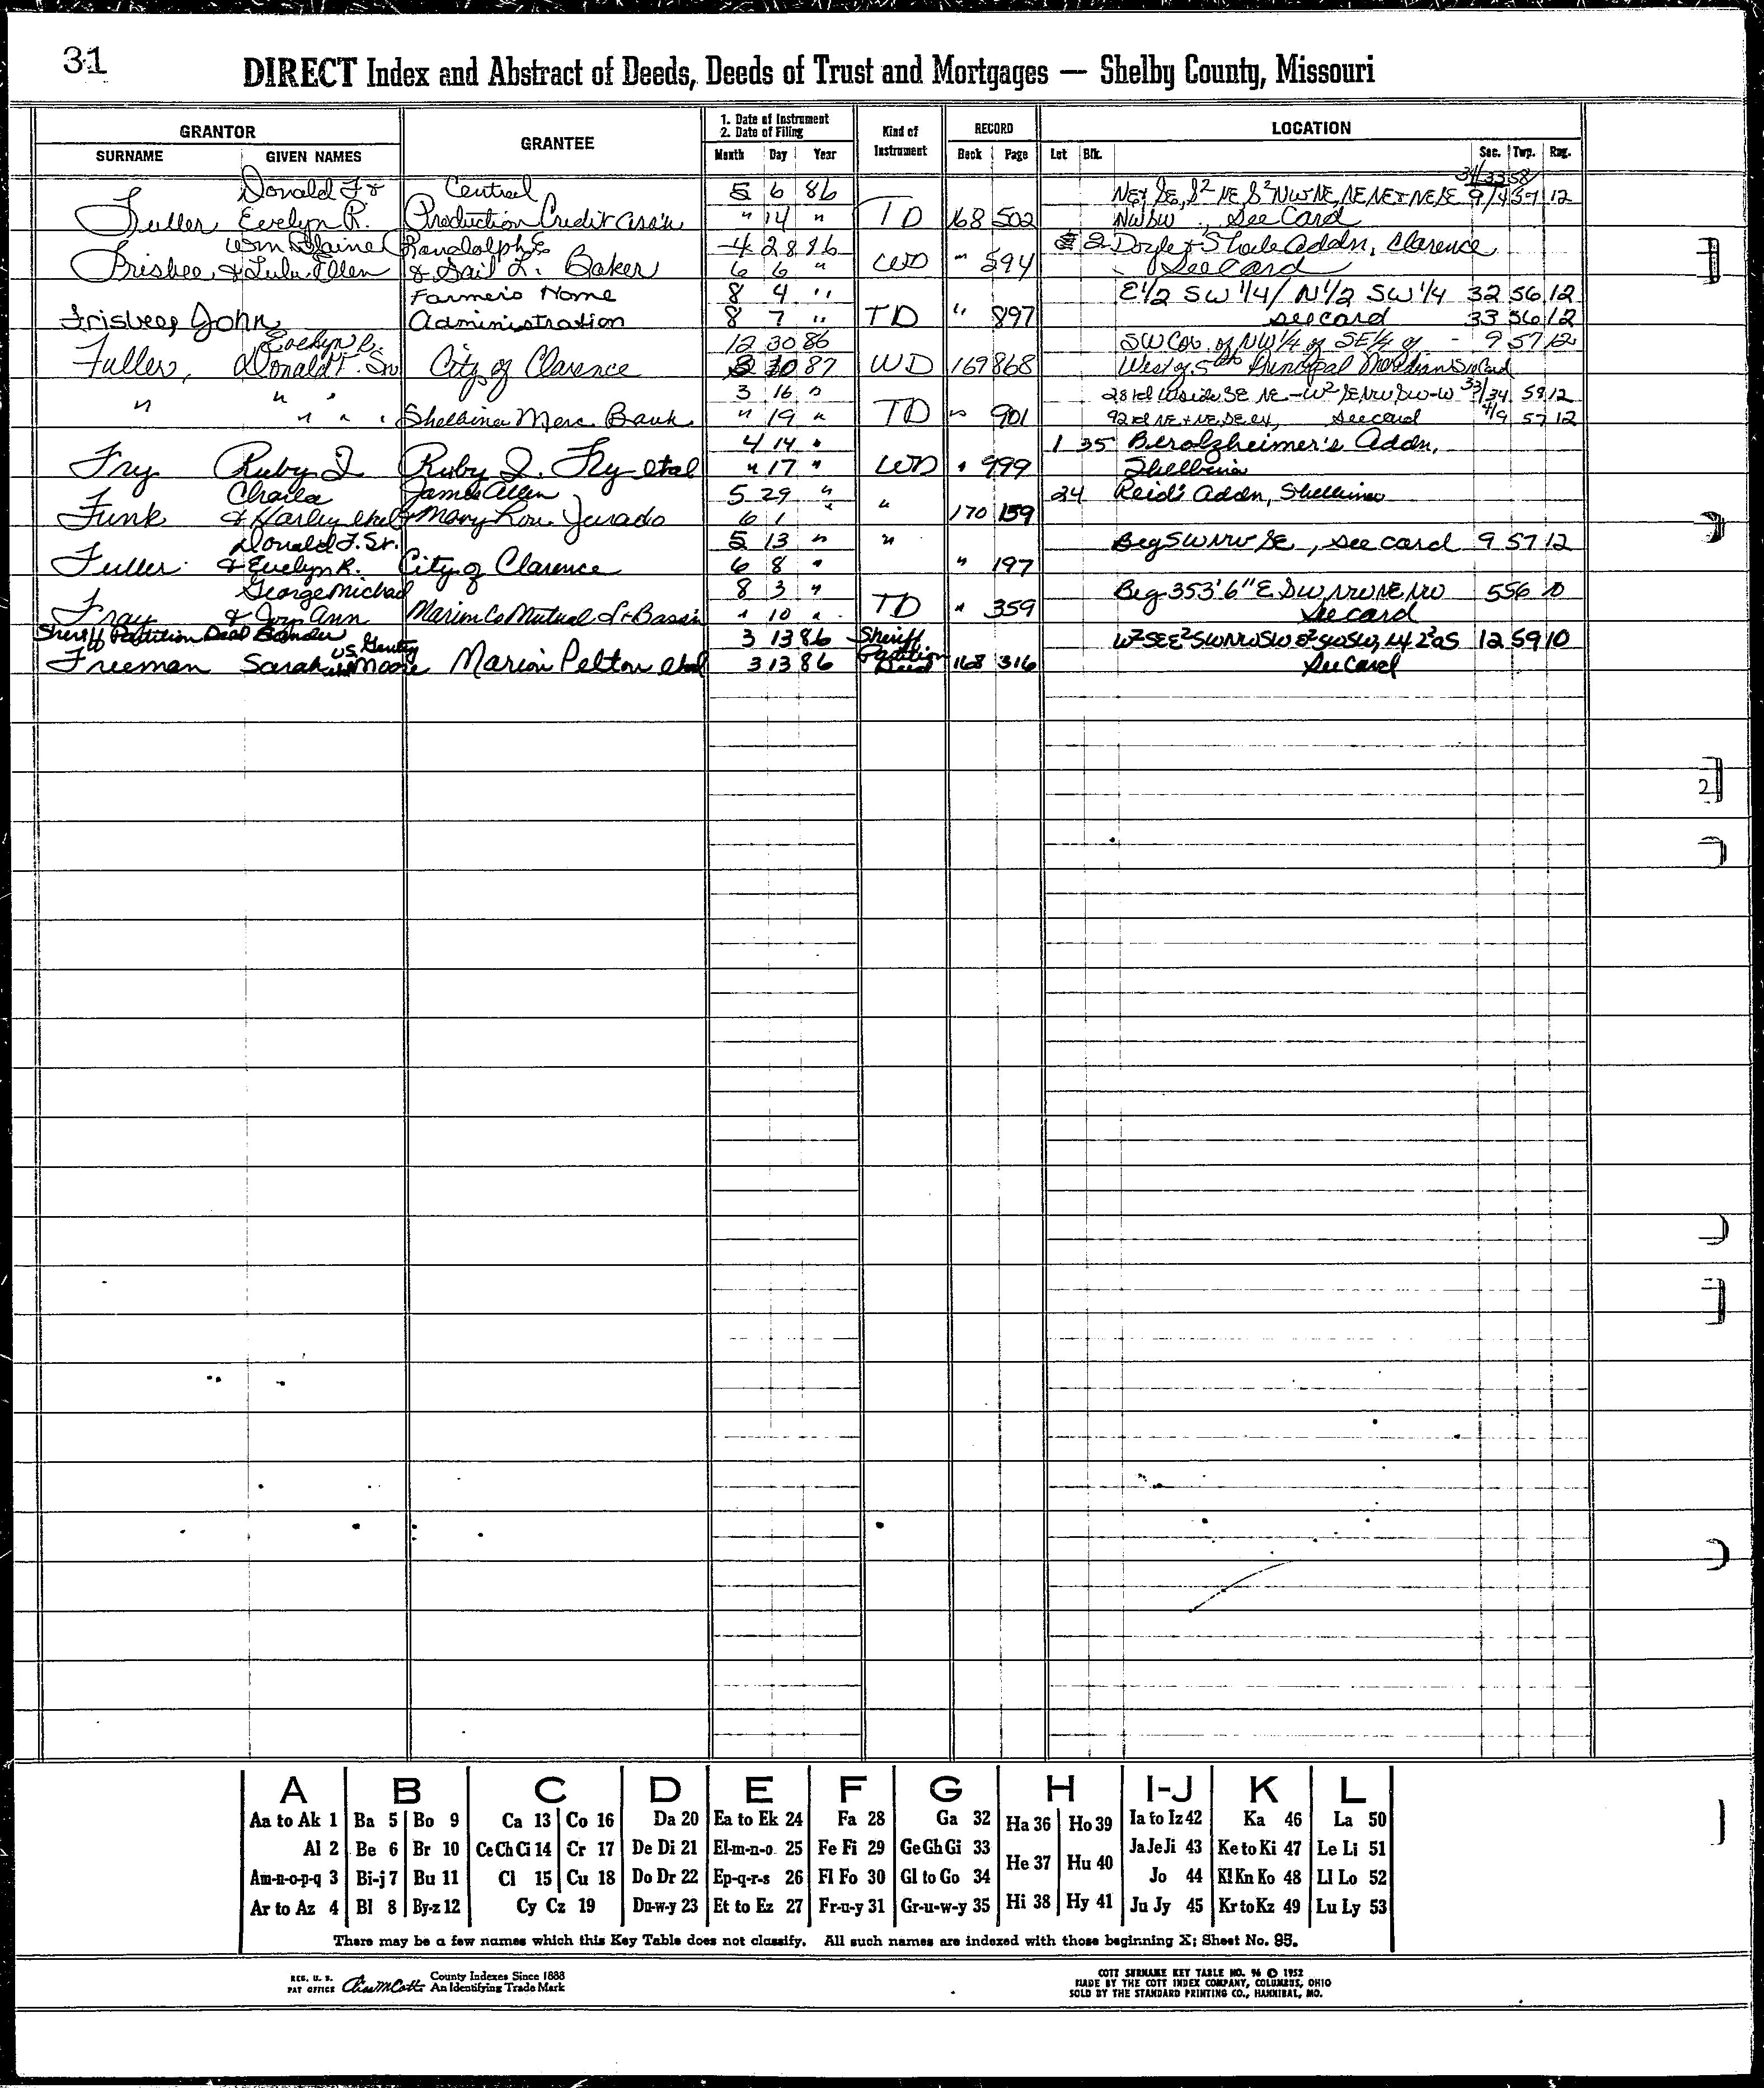 31
DIRECT Index and Abstract of Deeds, Deeds of Trust and Mortgages — Shelby County, Missouri
GRANTOR GRANTEE 1. Date of Instrument 2. Date of Filing Kind of Instrument RECORD LOCATION
SURNAME GIVEN NAMES Month Day Year Book Page Lot Blk. Sec. Twp. Rng.
34/33 58
Donald F & Central 5 6 86 NE& SE, S² NE S² NW& NE, NE NE& NE SE 9/4 57 12
Fuller Evelyn R. Production Credit Ass'n " 14 " TD 168 502 NW SW, See Card
Wm Blaine Randolph E 4 28 86 2 Doyle & Shale Addn, Clarence
Frisbee, & Lulu Ellen & Gail L. Baker 6 6 " WD " 594 See Card
Farmers Home 8 4 " E1/2 SW 1/4 / N1/2 SW 1/4 32 56 12
Frisbee, John Administration 8 7 " TD " 897 see card 33 56 12
Evelyn R. 12 30 86 SW Cor. of NW 1/4 of SE 1/4 of - 9 57 12
Fuller, Donald F. Sr. City of Clarence 30 87 WD 169 868 West of 5th Principal Meridian See Card
" " " 3 16 " 28 rd W side SE NE - W² SE NW SW-W 33/34 59 12
" " " Shelbina Merc Bank " 19 " TD " 901 92 rd NE & NE, SE ex, see card 4/9 57 12
4 14 " 1 35 Berolzheimer's Addn,
Fry Ruby I Ruby I. Fry etal " 17 " WD " 999 Shelbina
Charla James Allen 5 29 " " 24 Reid's Addn, Shelbina
Funk & Harley etal & Mary Lou Jurado 6 1 " 170 159
Donald F. Sr. 5 13 " " Beg SW NW SE, see card 9 57 12
Fuller & Evelyn R. City of Clarence 6 8 " " 197
George Michael 8 3 " Beg 353'6" E SW NW NE NW 5 56 10
Fray & Joy Ann Marion Co Mutual " 10 " TD " 359 See card
Sheriff Partition Deed 3 13 86 Sheriff W² SE E² SW NW SW E² SW SW, 12 59 10
Freeman Sarah vs. Gentry Moore Marion Pelton etal 3 13 86 Partition Deed 168 316 See Card
2
A B C D E F G H I-J K L
Aa to Ak 1 Ba 5 Bo 9 Ca 13 Co 16 Da 20 Ea to Ek 24 Fa 28 Ga 32 Ha 36 Ho 39 Ia to Iz 42 Ka 46 La 50
Al 2 Be 6 Br 10 Ce Ch Ci 14 Cr 17 De Di 21 El-m-n-o 25 Fe Fi 29 Ge Gh Gi 33 He 37 Hu 40 Ja Je Ji 43 Ke to Ki 47 Le Li 51
Am-n-o-p-q 3 Bi-j 7 Bu 11 Cl 15 Cu 18 Do Dr 22 Ep-q-r-s 26 Fl Fo 30 Gl to Go 34 Jo 44 Kl Kn Ko 48 Ll Lo 52
Ar to Az 4 Bl 8 By-z 12 Cy Cz 19 Du-w-y 23 Et to Ez 27 Fr-u-y 31 Gr-u-w-y 35 Hi 38 Hy 41 Ju Jy 45 Kr to Kz 49 Lu Ly 53
There may be a few names which this Key Table does not classify. All such names are indexed with those beginning X; Sheet No. 95.
REG. U. S. PAT OFFICE Chas M Cott County Indexes Since 1888 An Identifying Trade Mark
COTT SURNAME KEY TABLE NO. 96 © 1952
MADE BY THE COTT INDEX COMPANY, COLUMBUS, OHIO
SOLD BY THE STANDARD PRINTING CO., HANNIBAL, MO.